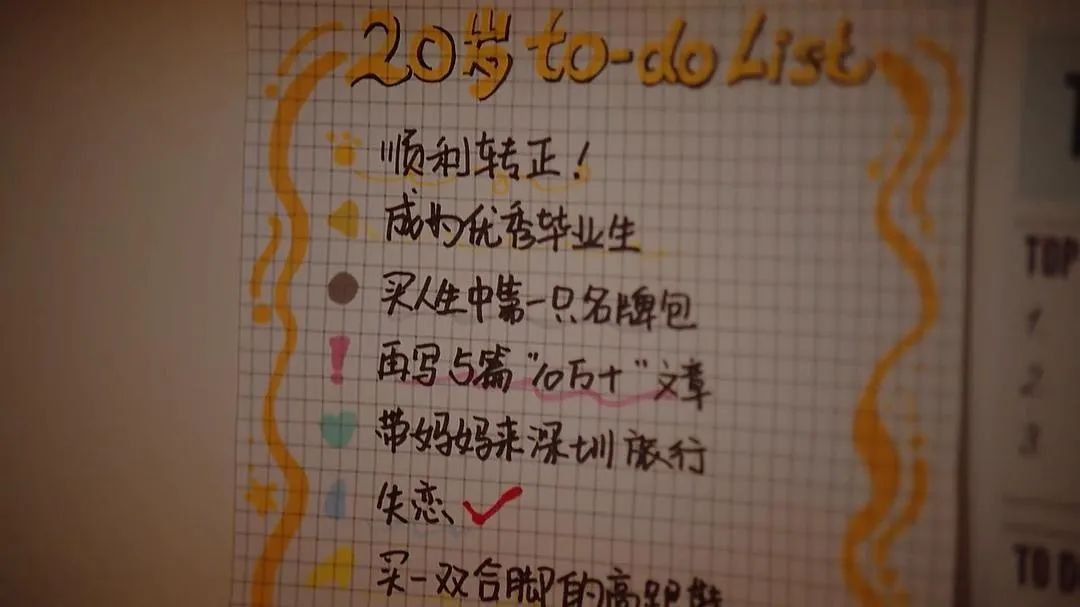 20岁 to-do List
顺利转正！
成为优秀毕业生
买人生中第一只名牌包
再写5篇“10万+”文章
带妈妈来深圳旅行
失恋
买一双合脚的高跟鞋
TOP
1
2
3
TO D